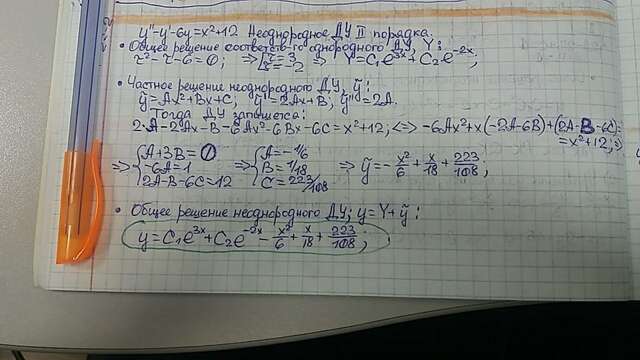 y''-y'-6y=x²+12 Неоднородное ДУ II порядка.
• Общее решение соответств-го однородного ДУ, Y:
r²-r-6=0; ⇒ [r=3 r=-2 ⇒ Y=C₁e^{3x}+C₂e^{-2x};
• Частное решение неоднородного ДУ, ỹ:
ỹ=Ax²+Bx+C; ỹ'=2Ax+B; ỹ''=2A.
Тогда ДУ запишется:
2A-2Ax-B-6Ax²-6Bx-6C=x²+12; <=> -6Ax²+x(-2A-6B)+(2A-B-6C)=
=x²+12; ⇒
⇒ {A+3B=0 -6A=1 2A-B-6C=12 ⇒ {A=-1/6 B=1/18 C=-223/108 ⇒ ỹ=-x²/6+x/18+223/108;
• Общее решение неоднородного ДУ; y=Y+ỹ:
y=C₁e^{3x}+C₂e^{-2x}-x²/6+x/18+223/108;